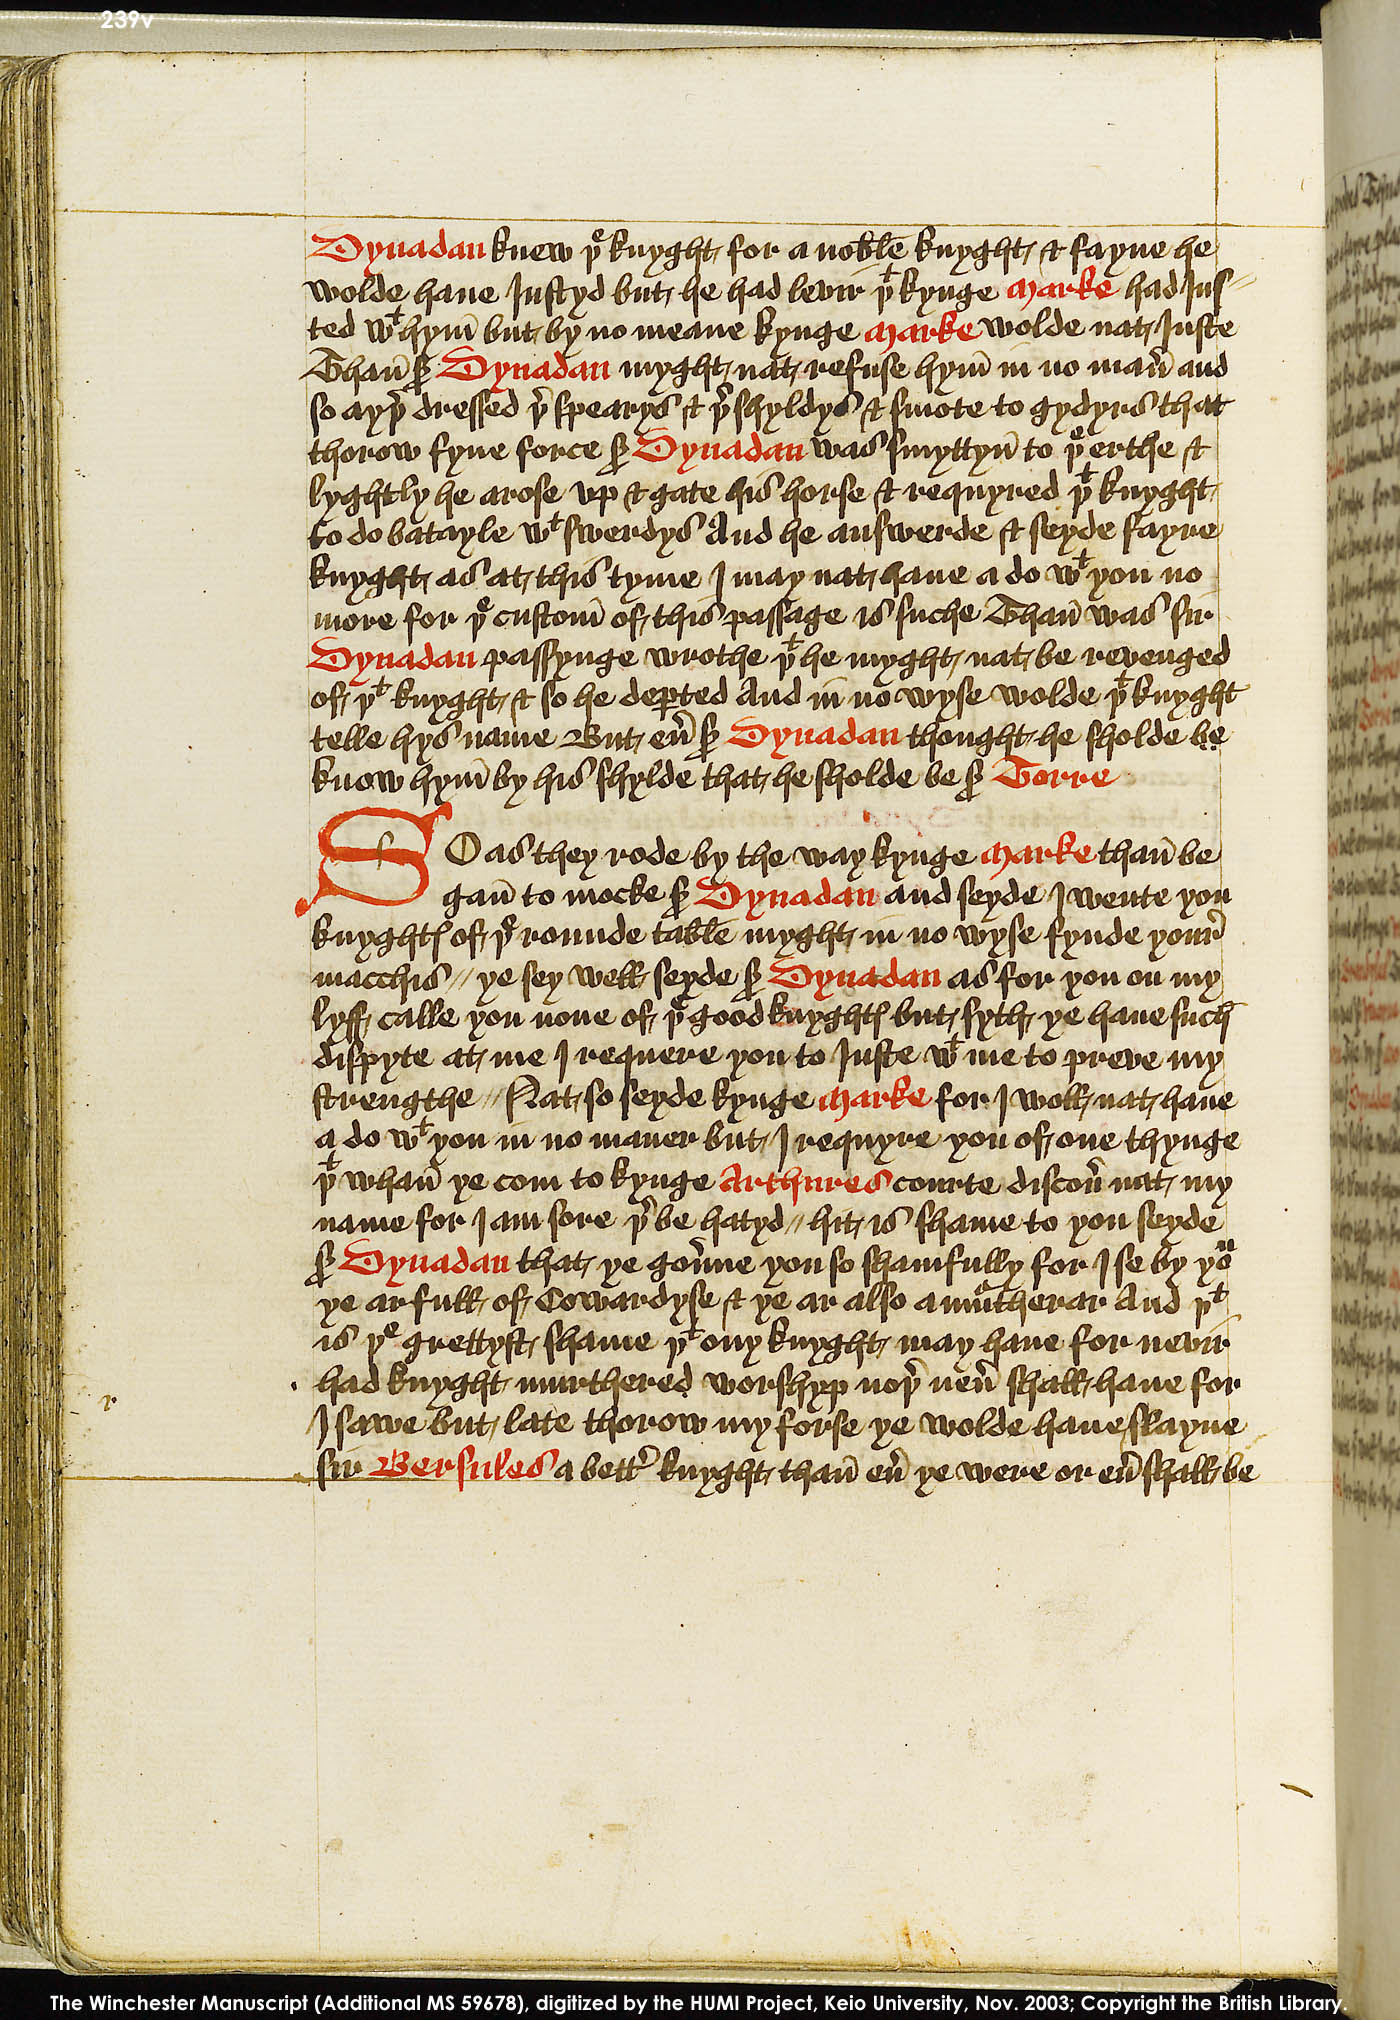 239v
Dynadan knew þe knyght for a noble knyght & fayne he
wolde haue Justyd but he had levir þt kynge Marke had Jus-
ted wt hym̄ but by no meane kynge Marke wolde nat Juste
Than̄ sr Dynadan myght nat refuse hym̄ in no man̄ and
so ayþr dressed þr spearys & þr shyldys & smote to gydyrs that
thorow fyne force sr Dynadan was smyttyn̄ to þe erthe &
lyghtly he arose vp & gate his horse & requyred þt knyght
to do batayle wt swerdys And he answerde & seyde fayre
knyght as at this tyme J may nat haue a do wt you no
more for þe custom̄ of this passage is suche Than̄ was sir
Dynadan passynge wrothe þt he myght nat be revenged
of þt knyght & so he deꝑted And in no wyse wolde þt knyght
telle hys name But eū sr Dynadan thought he sholde be
know hym̄ by his shylde that he sholde be sr Torre
SO as they rode by the way kynge Marke than̄ be
gan̄ to mocke sr Dynadan and seyde J wente you
knyghtꝭ of þe rounde table myght in no wyse fynde your̄
macchis // ye sey well seyde sr Dynadan as for you on my
lyff calle you none of þe good knyghtꝭ but syth ye haue such
dispyte at me J requere you to Juste wt me to preve my
strengthe // Nat so seyde kynge Marke for J woll nat haue
a do wt you in no maner but J requyre you of one thynge
þt whan̄ ye com to kynge Arthures courte discoū nat my
name for J am sore þr be hatyd // hit is shame to you seyde
sr Dynadan that ye goūne you so shamfully for J se by yow
ye ar full of Cowardyse & ye ar also a murtherar And þt
is þe grettyst shame þt ony knyght may haue for nevir
had knyght murthered worshyp noþr neū shall haue for
J sawe but late thorow my forse ye wolde haue slayne
sir Bersules a bettr knyght than̄ eū ye were or eū shall be
r
The Winchester Manuscript (Additional MS 59678), digitized by the HUMI Project, Keio University, Nov. 2003; Copyright the British Library.